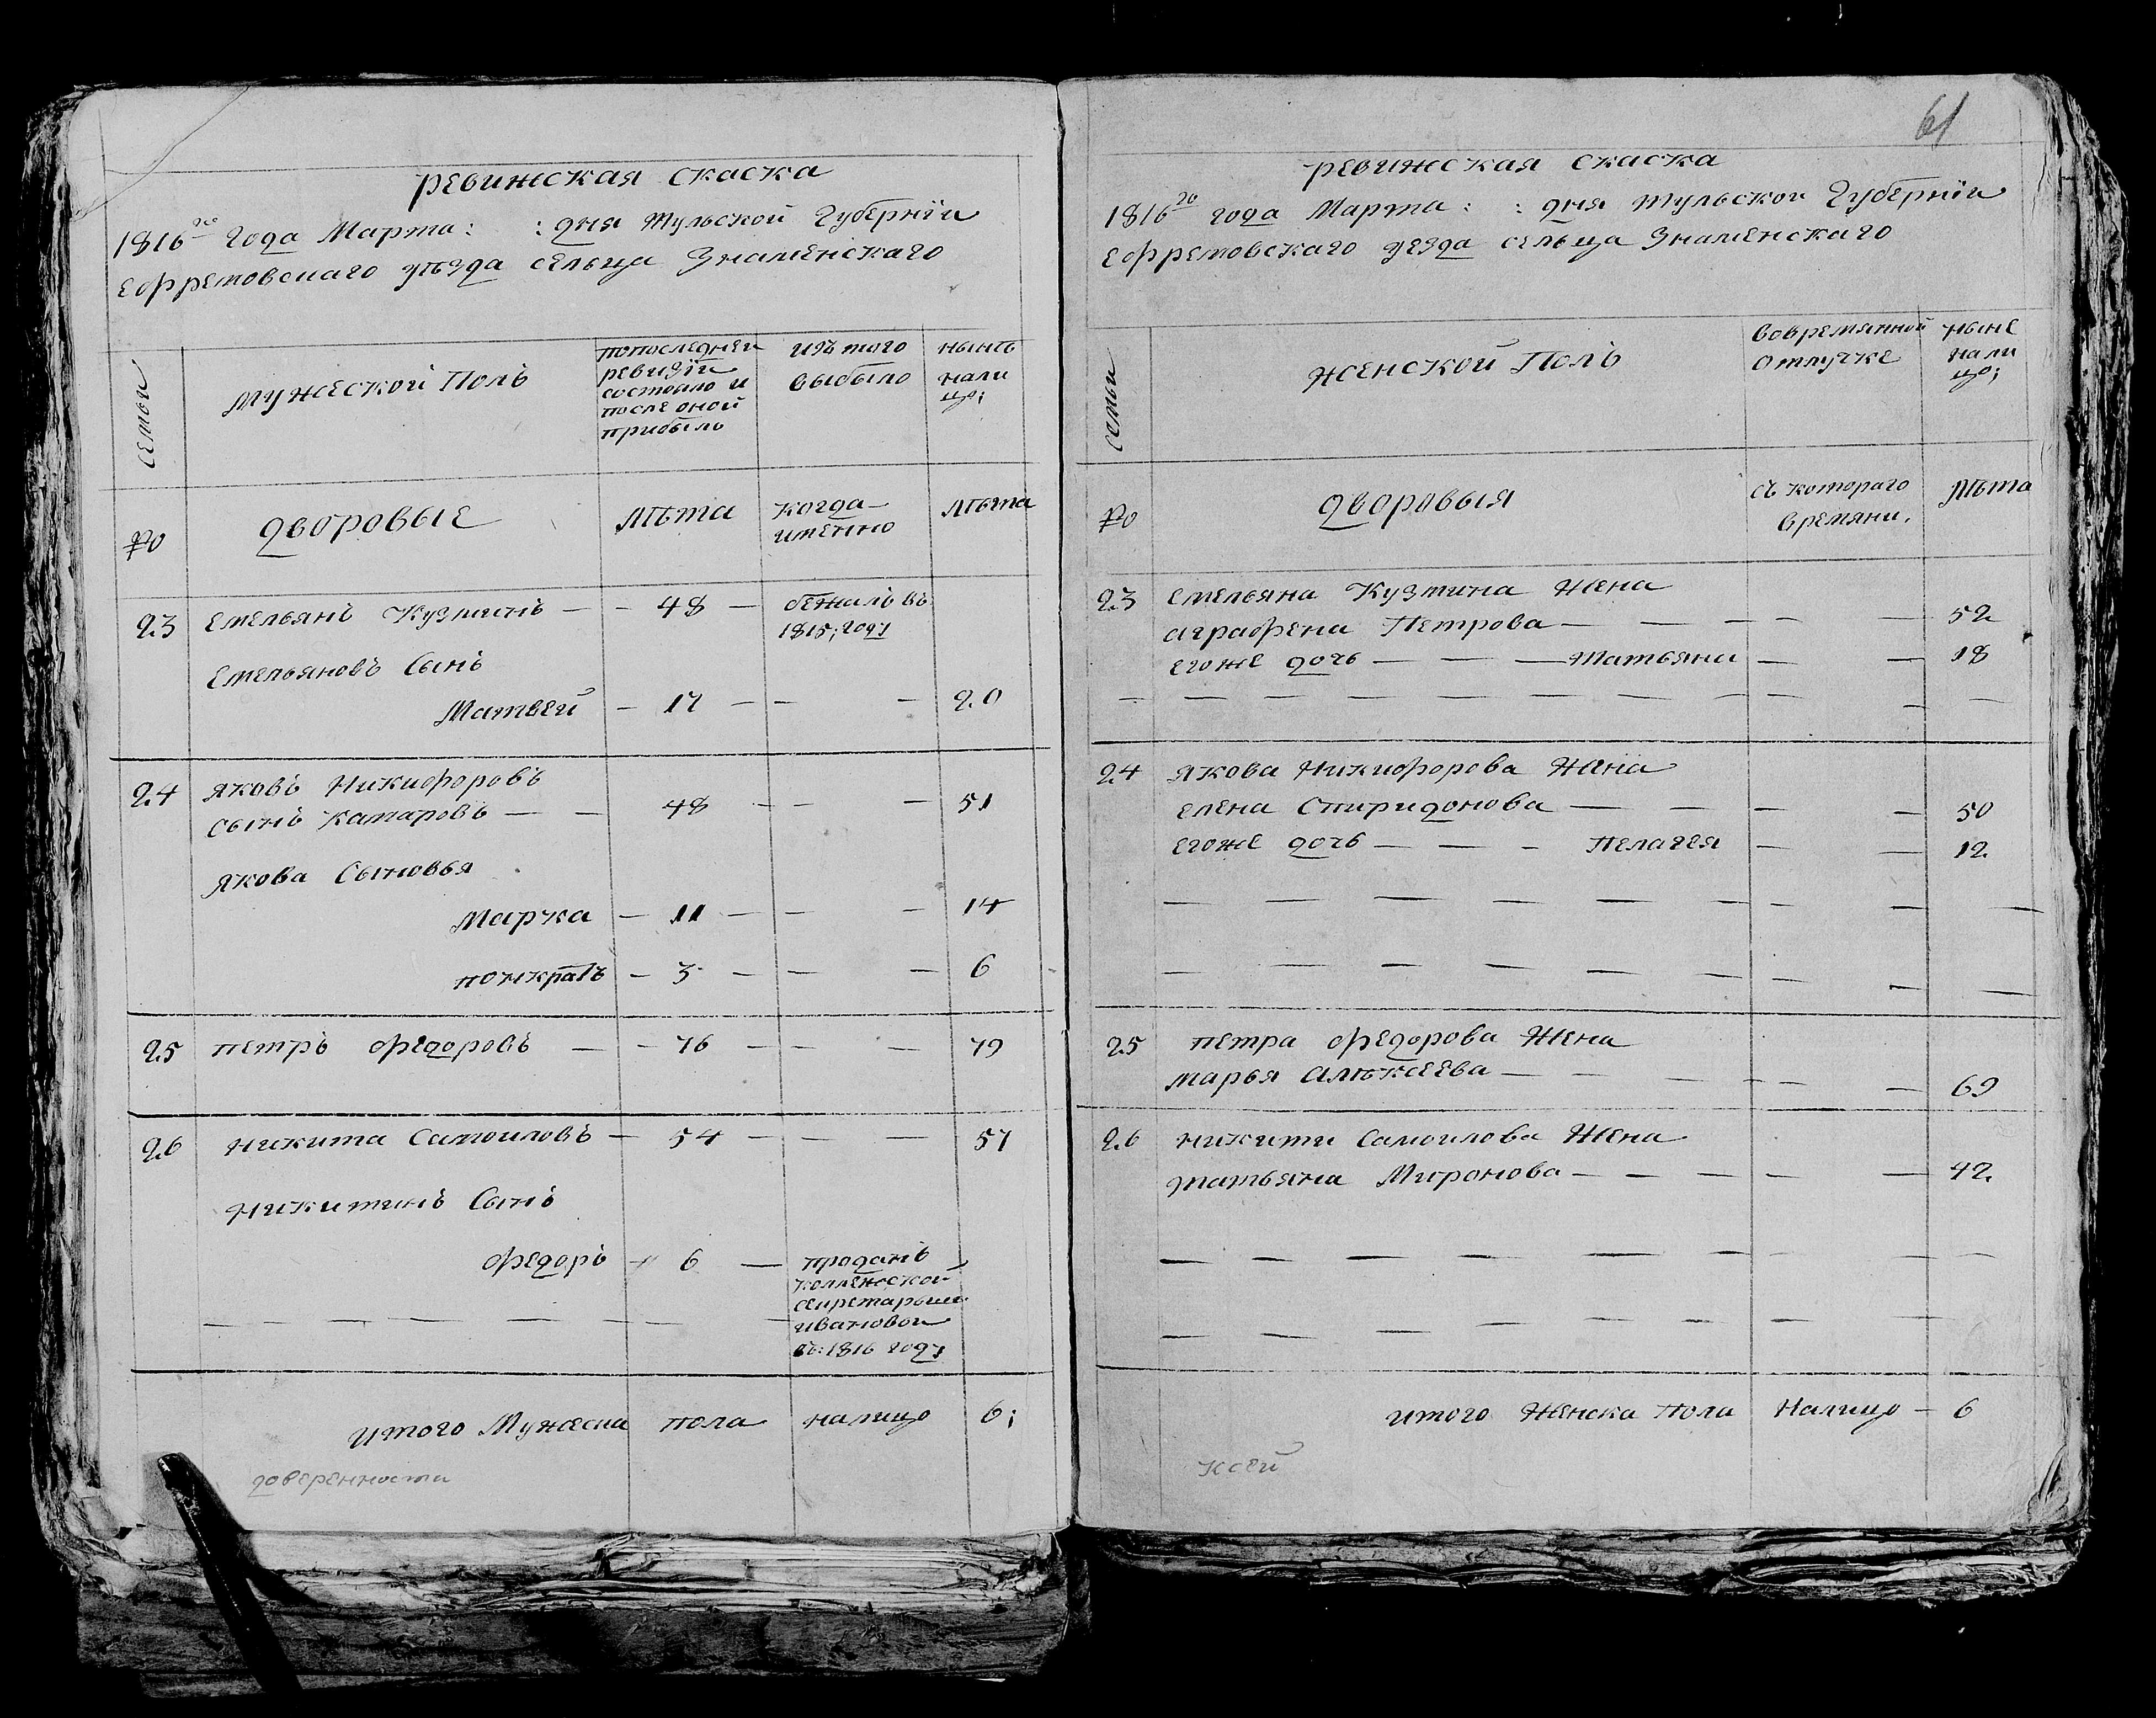 ревижская скаска
1816го года Марта: : дня тульской Губернїи
ефремовскаго уѣзда сельца Знаменскаго
семьи
мужеской Полъ
попоследнеи
ревизїи
состояло и
после оной
прибыло
изъ того
выбыло
нынѣ
нали
цо;
№
дворовые
лѣта
когда
именно
лѣта
23 емельянъ Кузминъ — — 48 — бежалъ въ
1815; году
емельяновъ Сынъ
Матвей — 17 — — — 20
24 яковъ Никифоровъ
сынъ Катаровъ — — 48 — — — 51
якова Сыновья
Марка — 11 — — — 14
понкратъ — 3 — — — 6
25 петръ федоровъ — — 76 — — — 79
26 никита Самоиловъ — 54 — — — 57
никитинъ Сынъ
федоръ — 6 — проданъ
коллежской
секретарьше
ивановои
въ: 1816 году
итого Мужеска пола налицо 6;
доверенности
61
ревижская скаска
1816го года Марта: : дня тульскои Губернїи
ефремовскаго уезда сельца Знаменскаго
семьи
женской Полъ
вовремянной
отлучке
ныне
нали
цо;
№
дворовыя
съ котораго
времяни.
лѣта
23 емельяна Кузмина жена
аграфена Петрова — — — — — 52
егоже дочь — — — татьяна — — 18
24 якова Никифорова Жена
елена Спиридонова — — — — 50
егоже дочь — — — пелагея — — 12
25 петра федорова Жена
марья Алѣксеева — — — — — 69
26 никити самоилова Жена
татьяна Миронова — — — — — 42
итого Женска пола Налицо — 6
ксей